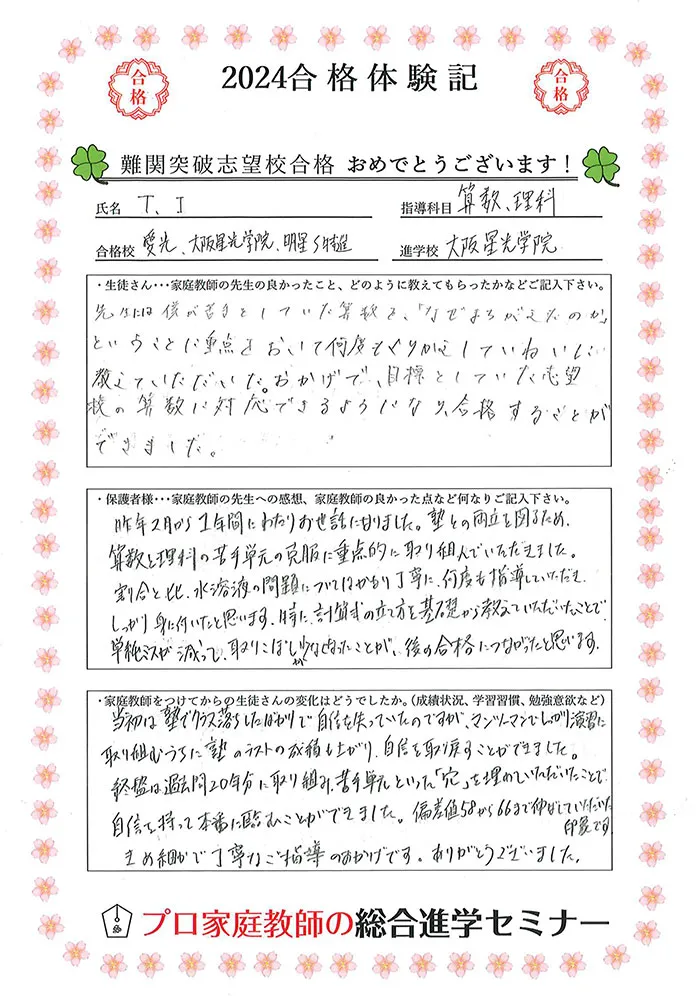 2024合格体験記
合格
合格
難関突破志望校合格 おめでとうございます!
氏名 T、I
指導科目 算数、理科
合格校 愛光、大阪星光学院、明星S特進
進学校 大阪星光学院
・生徒さん・・・家庭教師の先生の良かったこと、どのように教えてもらったかなどご記入下さい。
先生には僕が苦手としていた算数を、「なぜまちがえたのか」
ということに重点をおいて何度もくりかえしていねいに
教えていただいた。おかげで、目標としていた志望
校の算数に対応できるようになり、合格することが
できました。
・保護者様・・・家庭教師の先生への感想、家庭教師の良かった点など何なりご記入下さい。
昨年2月から1年間にわたりお世話になりました。塾との両立を図るため、
算数と理科の苦手単元の克服に重点的に取り組んでいただきました。
割合と比、水溶液の問題についてはかなり丁寧に、何度も指導していただき、
しっかり身に付いたと思います。特に、計算式の立て方を基礎から教えていただいたことで、
単純ミスが減って、取りこぼしが少なくなったことが、後の合格につながったと思います。
・家庭教師をつけてからの生徒さんの変化はどうでしたか。(成績状況、学習習慣、勉強意欲など)
当初は塾でクラス落ちしたばかりで自信を失っていたのですが、マンツーマンでしっかり演習に
取り組むうちに塾のテストの成績も上がり、自信を取り戻すことができました。
終盤は過去問20年分に取り組み、苦手単元といった「穴」を埋めていただいたことで、
自信を持って本番に臨むことができました。偏差値58から66まで伸ばしていただいた
印象です。
きめ細かで丁寧なご指導のおかげです。ありがとうございました。
プロ家庭教師の総合進学セミナー